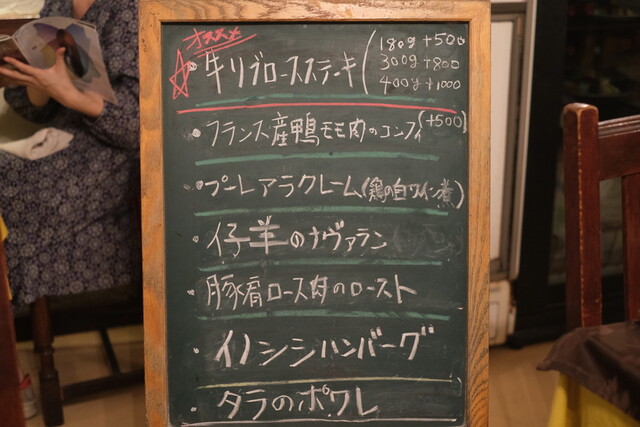 オススメ
☆・牛リブロースステーキ(180g+500
300g+800
400g+1000
・フランス産鴨モモ肉のコンフィ(+500)
・プーレアラクレーム(鶏の白ワイン煮)
・仔羊のナヴァラン
・豚肩ロース肉のロースト
・イノシシハンバーグ
・タラのポワレ